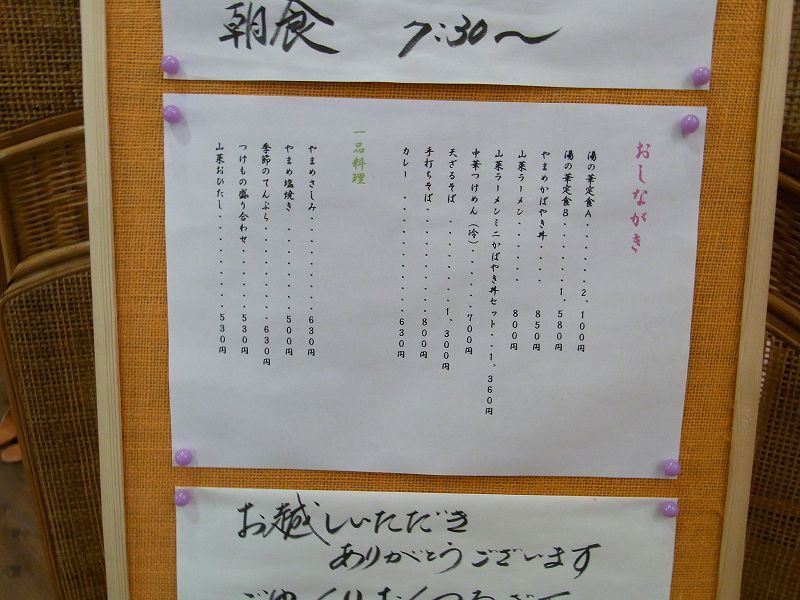 朝食 7:30〜
おしながき
湯の華定食A.......2,100円
湯の華定食B......1,580円
やまめかばやき丼....850円
山菜ラーメン......800円
山菜ラーメンミニかばやき丼セット..1,360円
中華つけめん(冷)......700円
天ざるそば.......1,300円
手打ちそば.........800円
カレー..........630円
一品料理
やまめさしみ..........630円
やまめ塩焼き.........500円
季節のてんぷら.........630円
つけもの盛り合わせ.......530円
山菜おひたし..........530円
お越しいただき
ありがとうございます